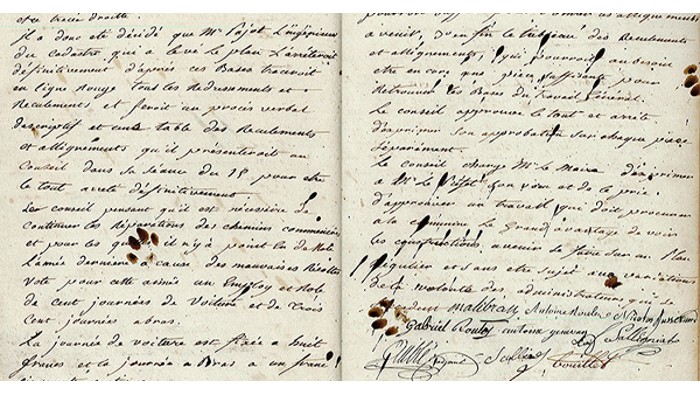 et ce tracé droite.
il a donc été décidé que Mr Pajot L'ingénieur
du cadastre qui a levé le plan L'arrêteroit
définitivement d'après ces Bases traceroit
en ligne Rouge tous les Redressements et
Reculements et feroit un procès verbal
descriptif et une table des Reculements
et allignements qu'il présenteroit au
Conseil dans sa séance du 18 pour etre
le tout arreté définitivement
Le conseil pensant qu'il est nécéssaire de
continuer les Réparations des chemins commencées
et pour les il n'y a point de Role
L'année derniere a cause des mauvaises Récoltes
vote pour cette année un Employ et Role
de cent journées de voiture et de trois
cent journées a bras.
La journée de voiture est fixée a huit
francs et la journée a Bras a un franc
des Reculements
et allignements, qui pourroit au besoin
etre encore une pièce suffisante pour
Retrouver les Bases du travail Général.
Le conseil approuve le tout et arrete
d'exprimer son approbation sur chaque pièce
séparément.
Le conseil charge Mr Le Maire d'exprimer
a Mr Le Préfet son vœu et de le prier
d'approuver un travail qui doit procurer
a la commune Le Grand avantage de voir
les constructions a venir se faire sur un Plan
Régulier et sans etre sujet aux variations
de la volonté des administrateurs qui se
malibran Antoine
Gabriel